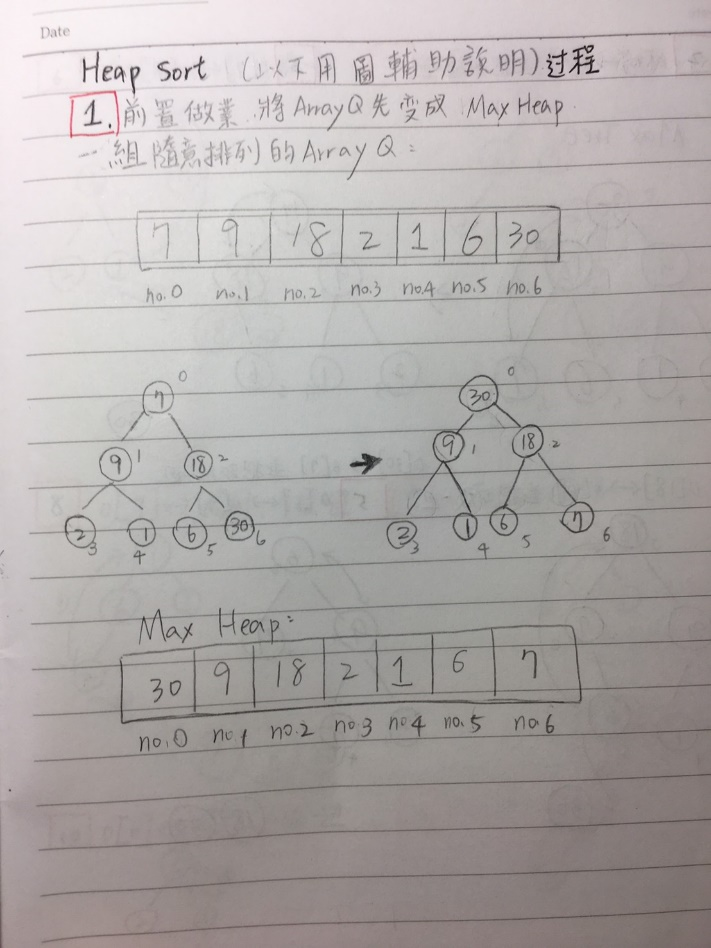 Date
Heap Sort (以下用圖輔助說明)过程
1. 前置做業 將Array Q先变成 Max Heap.
一組隨意排列的Array Q:
7 9 18 2 1 6 30
no.0 no.1 no.2 no.3 no.4 no.5 no.6
7 0 30 0
9 1 18 2 → 9 1 18 2
2 3 1 4 6 5 30 6 2 3 1 4 6 5 7 6
Max Heap:
30 9 18 2 1 6 7
no.0 no.1 no.2 no.3 no.4 no.5 no.6